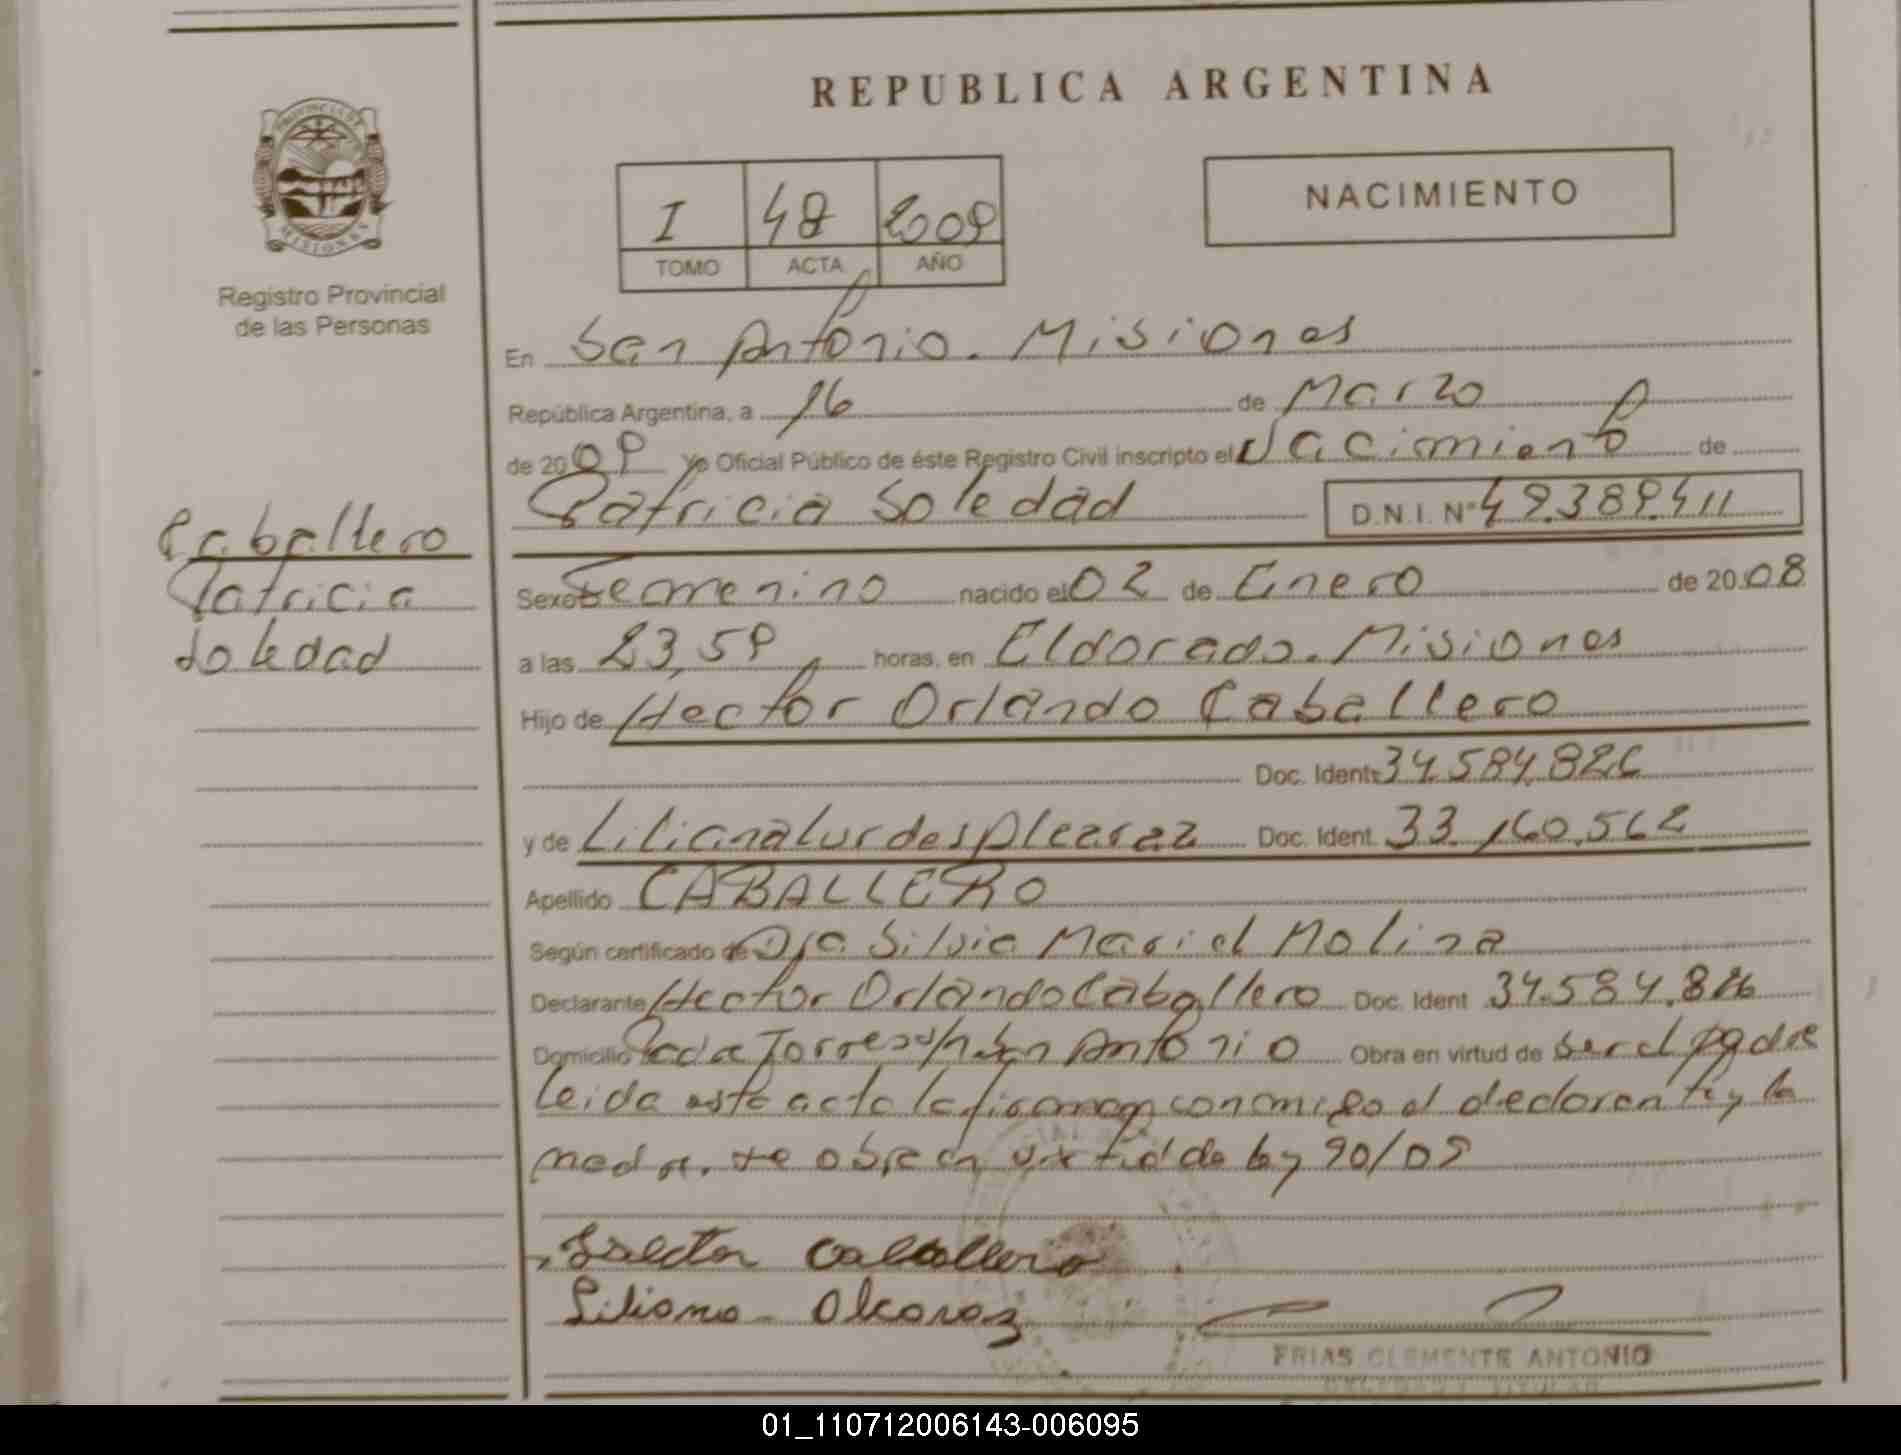 REPUBLICA ARGENTINA
PROVINCIA DE
MISIONES
Registro Provincial
de las Personas
I 48 2009
TOMO ACTA AÑO
NACIMIENTO
En San Antonio. Misiones
República Argentina, a 16 de Marzo
de 2009 Yo Oficial Público de éste Registro Civil inscripto el Nacimiento de
Patricia Soledad D.N.I. Nº 49.389.411
Caballero
Patricia
Soledad
Sexo Femenino nacido el 02 de Enero de 2008
a las 23,59 horas, en Eldorado. Misiones
Hijo de Hector Orlando Caballero
Doc. Ident. 34.584.826
y de Liliana Lurdes Alcaraz Doc. Ident. 33.160.562
Apellido CABALLERO
Según certificado de Dra Silvia Mariel Molina
Declarante Hector Orlando Caballero Doc. Ident 34.584.826
Domicilio Torres s/n San Antonio Obra en virtud de ser el padre
leida esta acta la firman conmigo el declarante y la
madre. se obra en virtud de ley 90/09
Hector Caballero
Liliana Alcaraz
FRIAS CLEMENTE ANTONIO
01_110712006143-006095